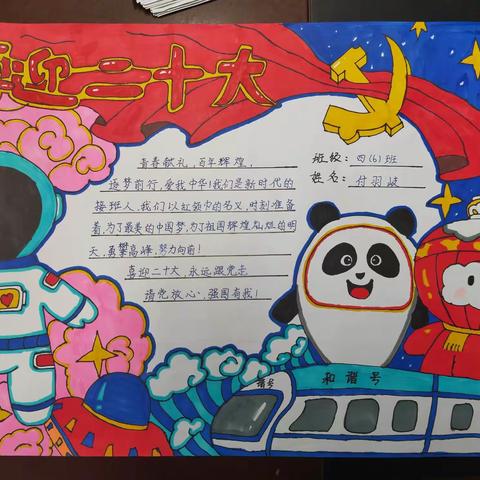 喜迎二十大
青春献礼，百年辉煌，
逐梦前行，爱我中华！我们是新时代的
接班人，我们以红领巾的名义，时刻准备
着，为了最美的中国梦，为了祖国辉煌灿烂的明
天，勇攀高峰，努力向前！
喜迎二十大，永远跟党走
请党放心，强国有我！
班校：四（6）班
姓名：付羽岐
和谐号